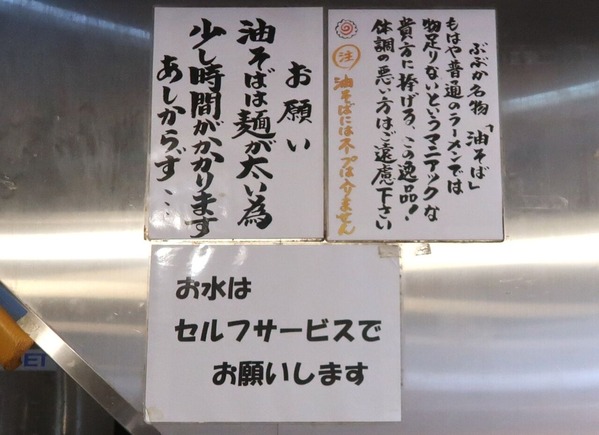 ぶぶか名物「油そば」
もはや普通のラーメンでは
物足りないというマニアックな
貴方に捧げる、この逸品!
体調の悪い方はご遠慮下さい
注 油そばにはスープは介ません
お願い
油そばは麺が太い為
少し時間がかかります
あしからず…
お水は
セルフサービスで
お願いします